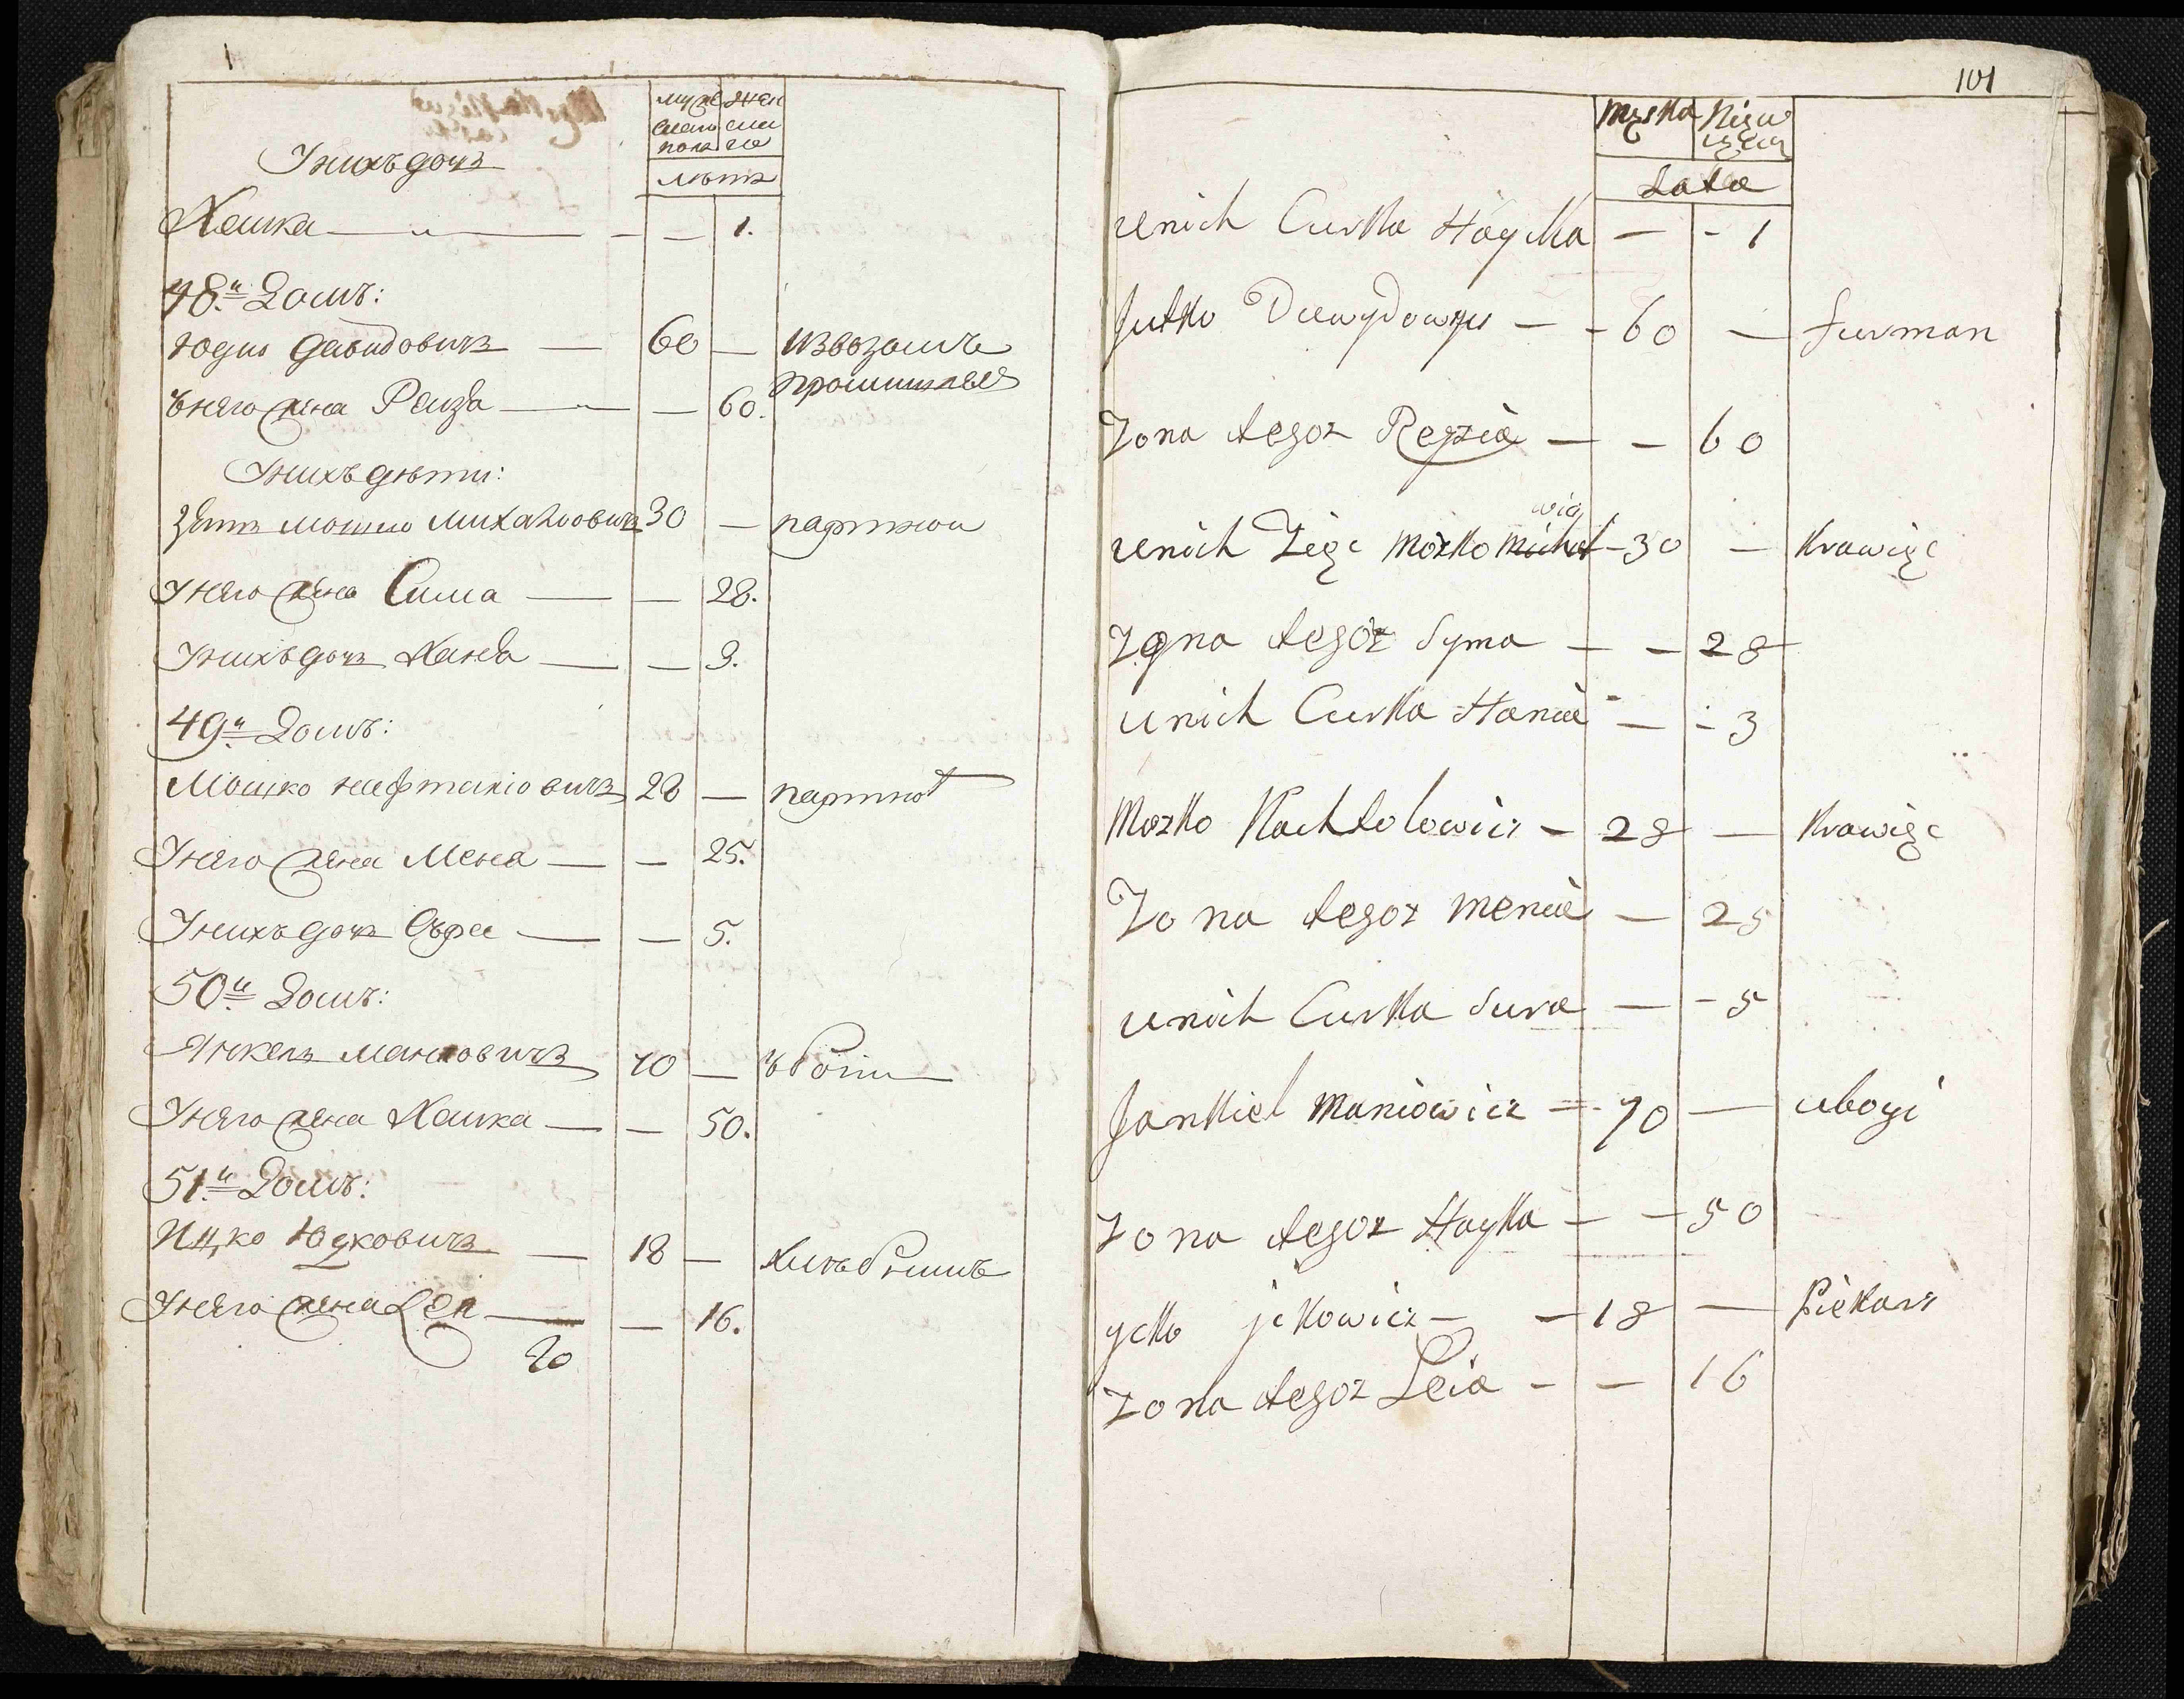 мужескаго пола
женскаго
лѣтъ
Унихъ дочь
Хаика — — 1.
48.й Домъ:
Юдко Давидовичъ — 60 — извозомъ
промишляе
Унего жена Реиза — — 60.
Унихъ дѣти:
Зять Мошко Михаловичъ 30 — партной
Унего жена Сима — — 28.
Унихъ дочь Хана — — 3.
49й Домъ:
Мошко Нафталіовичъ 28 — партной
Унего жена Мена — — 25.
Унихъ дочь Сура — — 5.
50й Домъ:
Янкель Манiовичъ 70 — убогiи
Унего жена Хаика — — 50.
51.й Домъ:
Ицко Юдковичъ — 18 —
Унего жена Лея — — 16.
101
Męska Niew
Lata
unich Curka Hayka — - 1
Jutko Dawydowicz — - 60 — furman
Zona tegoz Reyzia — — 60
wicz
unich Zięć Mozko Michel - 30 — Krawięc
Zona tegoz Syma — — 28
unich Curka Hania — - 3
Mozko Nachtolowicz - 28 — Krawięc
Zona tegoz Menia — 25
unich Curka Sura — - 5
Jankiel Maniowicz — 70 — ubogi
Zona tegoz Hayka — — 50
ycko jckowicz — — 18 — Piekarz
Zona tegoz Leia - — 16